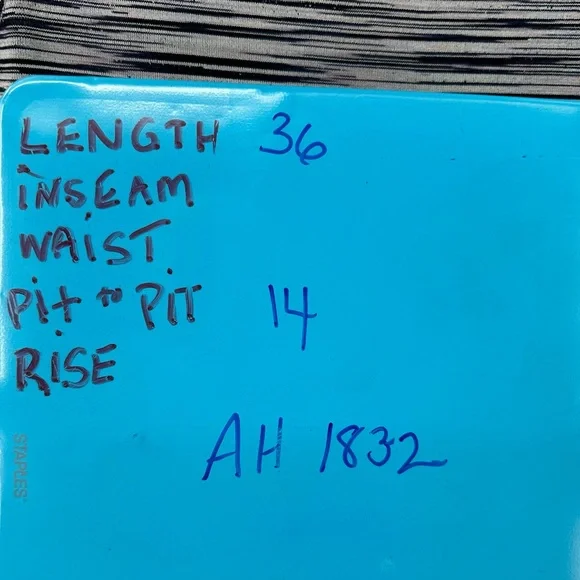 LENGTH 36
INSEAM
WAIST
Pit ~ PIT 14
RISE
AH 1832
STAPLES